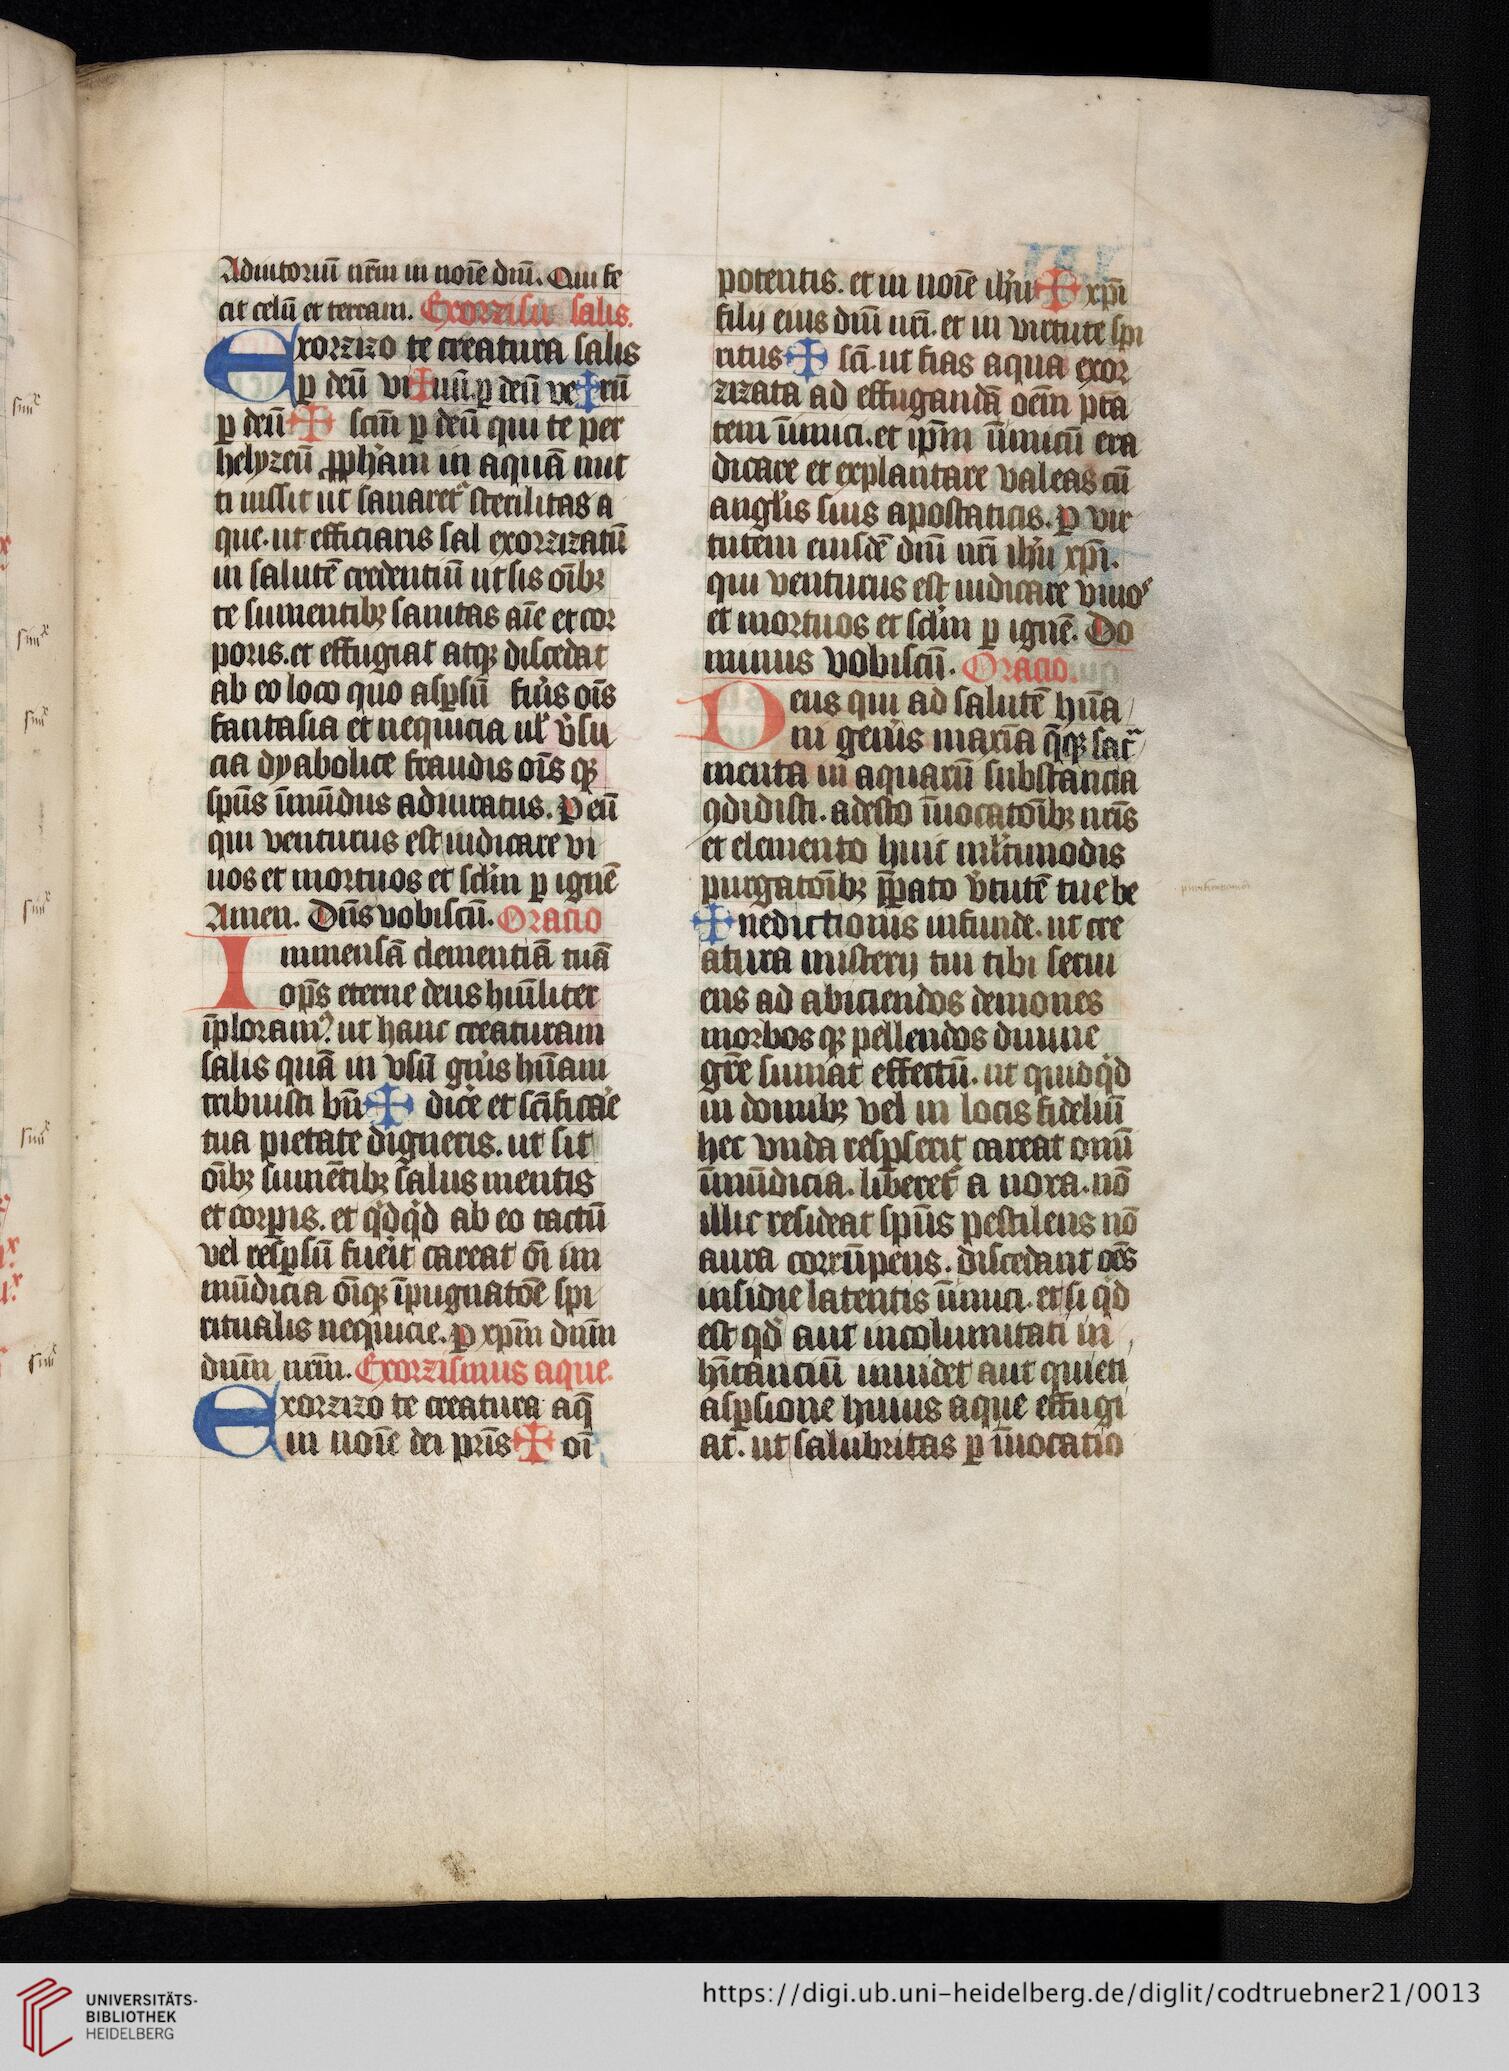 Adiutoriū nr̄m in noīe dnī. Qui fe
cit celū et terram. Exorzismꝰ salis.
Exorzizo te creatura salis
ꝑ deū vi✠uū. ꝑ deū ve✠rū
ꝑ deū ✠ scm̄ ꝑ deū qui te per
helyzeū ꝓpham in aquā mit
ti iussit ut sanaretᷣ sterilitas a
que. ut efficiaris sal exorzizatū
in salutē credentiū ut sis oībꝫ
te sumentibꝫ sanitas aīe et cor
poris. et effugiat atqꝫ discedat
ab eo loco quo asꝑsū fuͥs oīs
fantasia et nequicia ul̕ v̕su
cia dyabolice fraudis oīs qꝫ
spūs īmūdus adiuratus. ꝑ eū
qui venturus est iudicare vi
uos et mortuos et sc̄lm ꝑ ignē
Amen. Dn̄s vobiscū. Oracio
Immensā clementiā tuā
op̄s eterne deus humīliter
īploramꝰ. ut hanc creaturam
salis quā in vsū gn̕is hūani
tribuisti bn̄ ✠ dic̕e et sc̄ifica̕e
tua pietate digneris. ut sit
oībꝫ sumētibꝫ salus mentis
et corꝑis. et qͥdqͥd ab eo tactū
vel resꝑsū fue̕it careat oī im
mūdicia oīqꝫ īpugnatoē spi
ritualis nequicie. ꝑ xpm̄ dnm̄
dnm̄ nrm̄. Exorzismus aque.
Exorzizo te creatura aq̄
in noīe dei pr̄is ✠ oī
potentis. et in noīe ih̄u ✠ xp̄i
filii eius dnī nrī. et in virtute spi
ritus ✠ sc̄i. ut fias aqua exor
zizata ad effugandā oēm ptā
tem inīmici. et ip̄m inīmicū era
dicare et explantare valeas cū
angl̕is suis apostaticis. ꝑ vir
tutem eiusdē dnī nrī ih̄u xp̄i.
qui venturus est iudicare viuoˢ
et mortuos et sc̄lm ꝑ ignē. Do
minus vobiscū. Oracio.
Deus qui ad salutē hūa
ni gen̕is maxīa q̄qꝫ sacͣ
menta in aquarū substancia
ꝯdidisti. adesto īuocatoībꝫ nr̄is
et elemento huic ml̕timodis
purgatoībꝫ p̄parato v̕tutē tue be
✠ nedictionis infunde. ut cre
atura misterij tui tibi serui
ens ad abiciendos demones
morbos qꝫ pellendos diuine
gr̄e sumat effectū. ut quidqͥd
in domibꝫ vel in locis fideliū
hec vnda resꝑserit careat omī
īmūdicia. liberetᷣ a noxa. nō
illic resideat spūs pestilens nō
aura corrūpens. discedant oēs
insidie latentis inīmici. et si qͥd
est qd̕ aut incolumitati in
hītanciū inuidet aut quieti
asꝑsione huius aque effugi
at. ut salubritas ꝑ īuocatio
purificationibus
UNIVERSITÄTS-
BIBLIOTHEK
HEIDELBERG
https://digi.ub.uni-heidelberg.de/diglit/codtruebner21/0013